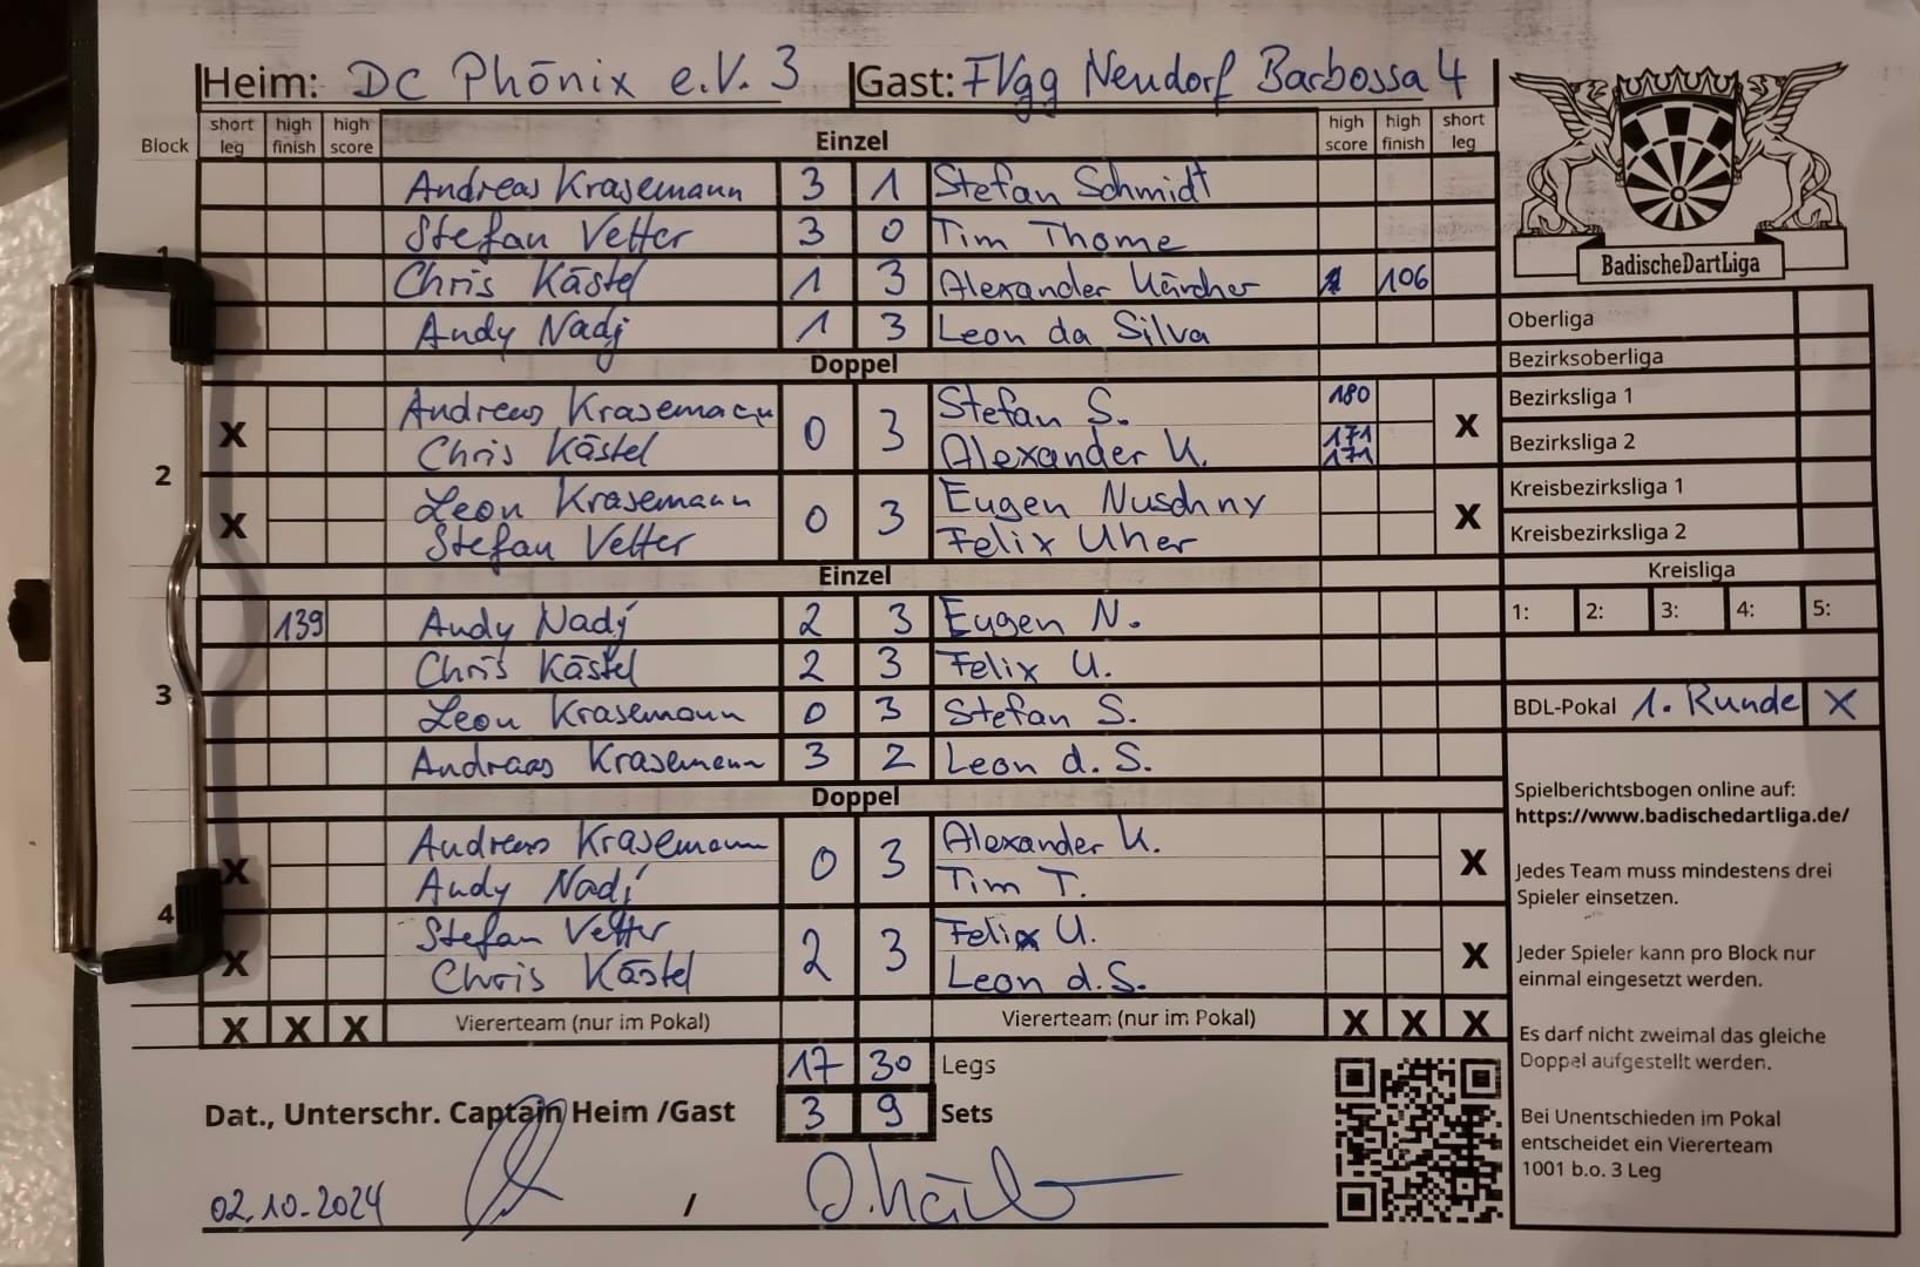 Heim: DC Phönix e.V. 3 Gast: FVgg Neudorf Barbossa 4
Block short leg high finish high score Einzel high score high finish short leg
Andreas Krasemann 3 1 Stefan Schmidt
Stefan Vetter 3 0 Tim Thome
1
Chris Kästel 1 3 Alexander Kärcher 106
Andy Nadj 1 3 Leon da Silva
Doppel
Andreas Krasemann Stefan S. 180
X 0 3 X
Chris Kästel Alexander K. 171 171
2
Leon Krasemann Eugen Nuschny
X 0 3 X
Stefan Vetter Felix Uher
Einzel
139 Andy Nadj 2 3 Eugen N.
Chris Kästel 2 3 Felix U.
3
Leon Krasemann 0 3 Stefan S.
Andreas Krasemann 3 2 Leon d. S.
Doppel
Andreas Krasemann Alexander K.
X 0 3 X
Andy Nadj Tim T.
4
Stefan Vetter Felix U.
X 2 3 X
Chris Kästel Leon d. S.
X X X Viererteam (nur im Pokal) Viererteam (nur im Pokal) X X X
17 30 Legs
Dat., Unterschr. Captain Heim /Gast 3 9 Sets
02.10.2024 /
BadischeDartLiga
Oberliga
Bezirksoberliga
Bezirksliga 1
Bezirksliga 2
Kreisbezirksliga 1
Kreisbezirksliga 2
Kreisliga
1: 2: 3: 4: 5:
BDL-Pokal 1. Runde X
Spielberichtsbogen online auf:
https://www.badischedartliga.de/
Jedes Team muss mindestens drei
Spieler einsetzen.
Jeder Spieler kann pro Block nur
einmal eingesetzt werden.
Es darf nicht zweimal das gleiche
Doppel aufgestellt werden.
Bei Unentschieden im Pokal
entscheidet ein Viererteam
1001 b.o. 3 Leg